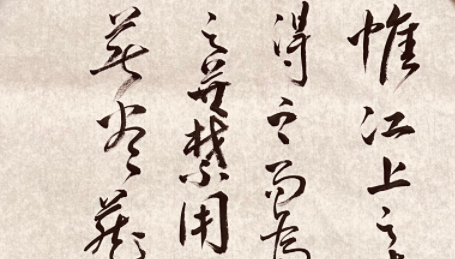 惟江上之
得之而為
之無禁用
無盡藏